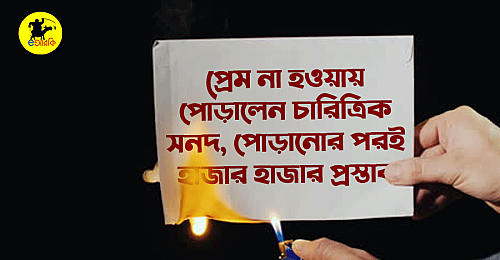 eআরকি
প্রেম না হওয়ায়
পোড়ালেন চারিত্রিক
সনদ, পোড়ানোর পরই
হাজার হাজার প্রস্তাব